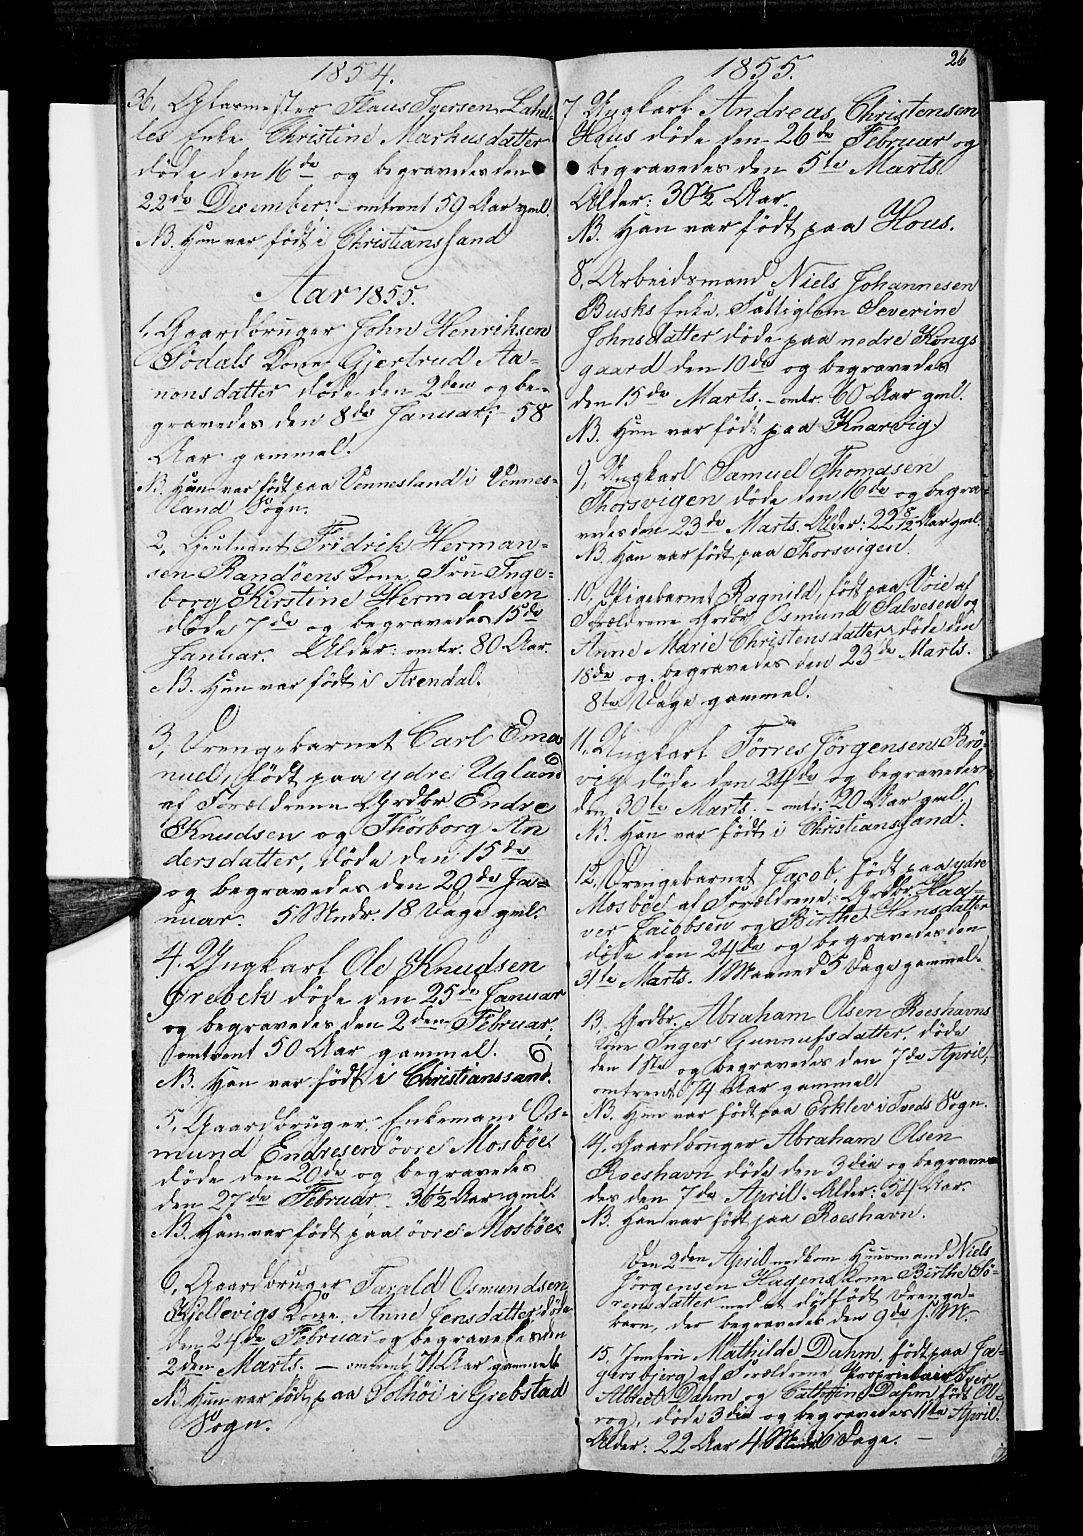 1854.
36, Glasmester Klaus Iversen Lahel-
les Enke Christine Markusdatter
døde den 16de og begravedes den
22de December. - omtrent 59 Aar gml.
NB. Hun var født i Christianssand
Aar 1855.
1, Gaardbruger John Henriksen
Sødals Kone Gjertrud Aa-
nonsdatter døde den 2den og be-
gravedes den 8de Januar, - 58
Aar gammel.
NB. Hun var født paa Vennesland i Vennes-
land Sogn.
2, Lieutnant Fridrik Herman-
sen Randøens Kone Fru Inge-
borg Kirstine Hermansen
døde 7de og begravedes 15de
Januar. Alder: omtr. 80 Aar.
NB. Hun var født i Arendal.
3, Drengebarnet Carl Ema
nuel, født paa ydre Ugland
af Forældrene Grdbr. Endre
Knudsen og Thorborg An
dersdatter, døde den 15de
og begravedes den 20de Ja-
nuar. 5 Mndr. 18 Dage gml.
4. Ungkarl Ole Knudsen
Ørebek døde den 25de Januar
og begravedes den 2den Februar,
omtrent 50 Aar gammel.
NB. Han var født i Christianssand.
5, Gaardbruger, Enkemand Os-
mund Endresen øvre Mosbøe
døde den 20de og begravedes
den 27de Februar - 36½ Aar gml.
NB. Han var født paa øvre Mosbøe.
6, Gaardbruger Tarald Osmundsen
Kjillevigs Kone Anne Jensdatter døde
den 24de Februar og begravedes den
2den Marts. - omtrent 71 Aar gammel.
NB. Hun var født paa Solhøi i Grebstad
Sogn.
26
1855.
7 Ungkarl Andreas Christensen
Hous døde den 26de Februar og
begravedes den 5te Marts.
Alder: 30½ Aar.
NB. Han var født paa Hous.
8, Arbeidsmand Niels Johannesen
Busks Enke, Fattiglem Severine
Johnsdatter døde paa nedre Kongs
gaard den 10de og begravedes
den 15de Marts. - omtr. 60 Aar gml.
NB. Hun var født paa Knarvig.
9, Ungkarl Samuel Thomasen
Thorsvigen døde den 16de og begra-
vedes den 23de Marts. Alder: 22 8/12 Aar gml.
NB. Han var født paa Thorsvigen.
10, Pigebarnet Ragnild, født paa Voie af
Forældrene Grdbr. Osmund Salvesen og
Anne Marie Christensdatter, døde den
18de og begravedes den 23de Marts.
8te Dage gammel.
11, Ungkarl Torres Jørgensen Brø-
vig døde den 24de og begravedes
den 30te Marts. - omtr. 20 Aar gml.
NB. Han var født i Christianssand.
12, Drengebarnet Jacob, født paa ydre
Mosbøe af Forældrene: Grdbr. Haa-
ver Jacobsen og Birthe Hansdatter
døde den 24de og begravedes den
31te Marts. 1 Maaned 5 Dage gammel.
13, Grdbr. Abraham Olsen Roeshavns
Kone Inger Gunnufsdatter, døde
den 1ste og begravedes den 7de April,
omtrent 74 Aar gammel.
NB. Hun var født paa Ecklev i Tveds Sogn.
14, Gaardbruger Abraham Olsen
Roeshavn døde den 3die og begrave
des den 7de April. Alder: 54 Aar.
NB. Han var født paa Roeshavn.
Den 2den April nedkom Huusmand Niels
Jørgensen Hagens Kone Birthe Sø-
rensdatter med et dødfødt Drenge-
barn, der begravedes den 9de s. M.
15, Jomfru Mathilde Dahm, født paa Jæ-
gersbjerg af Forældrene Proprietair Iver
Albret Dahm og Cathrine Dahm født Ol-
rog, døde 3die og begravedes 11te April.
Alder: 22 Aar 4 Mndr. 6 Dage. -